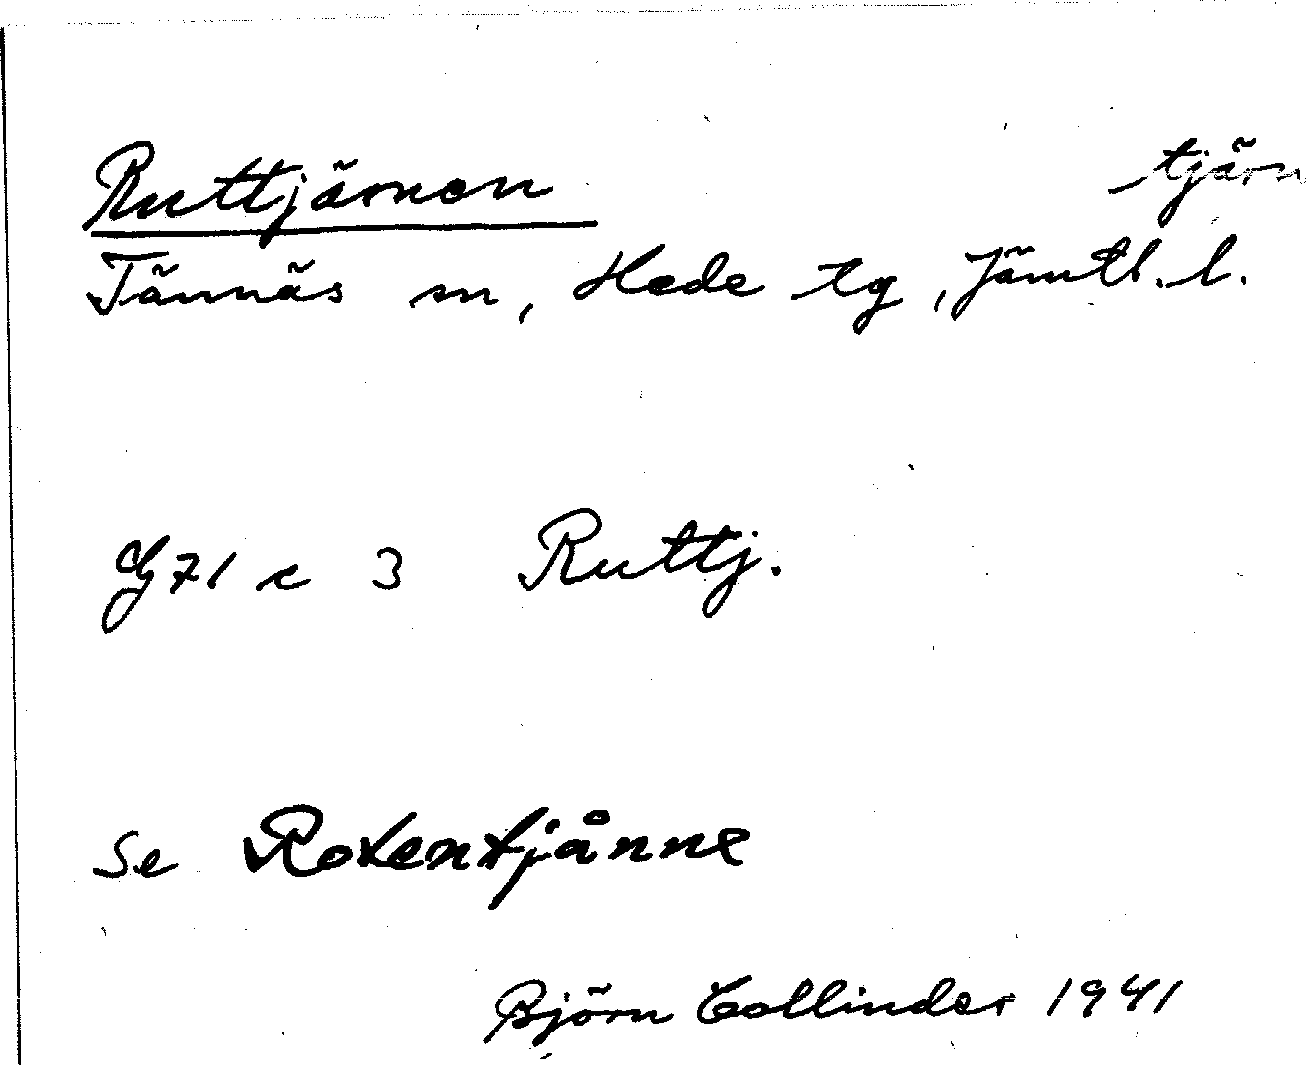 Ruttjärnen tjärn
Tännäs sn, Hede tg, Jämtl. l.
G71 c 3 Ruttj.
Se Rotentjånne
Björn Collinder 1941